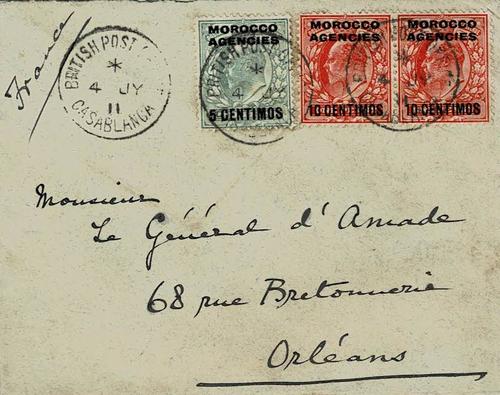 France
BRITISH POST
*
4 JY
11
CASABLANCA
MOROCCO
AGENCIES
5 CENTIMOS
MOROCCO
AGENCIES
10 CENTIMOS
MOROCCO
AGENCIES
10 CENTIMOS
Monsieur
Le Général d'Amade
68 rue Bretonnerie
Orléans